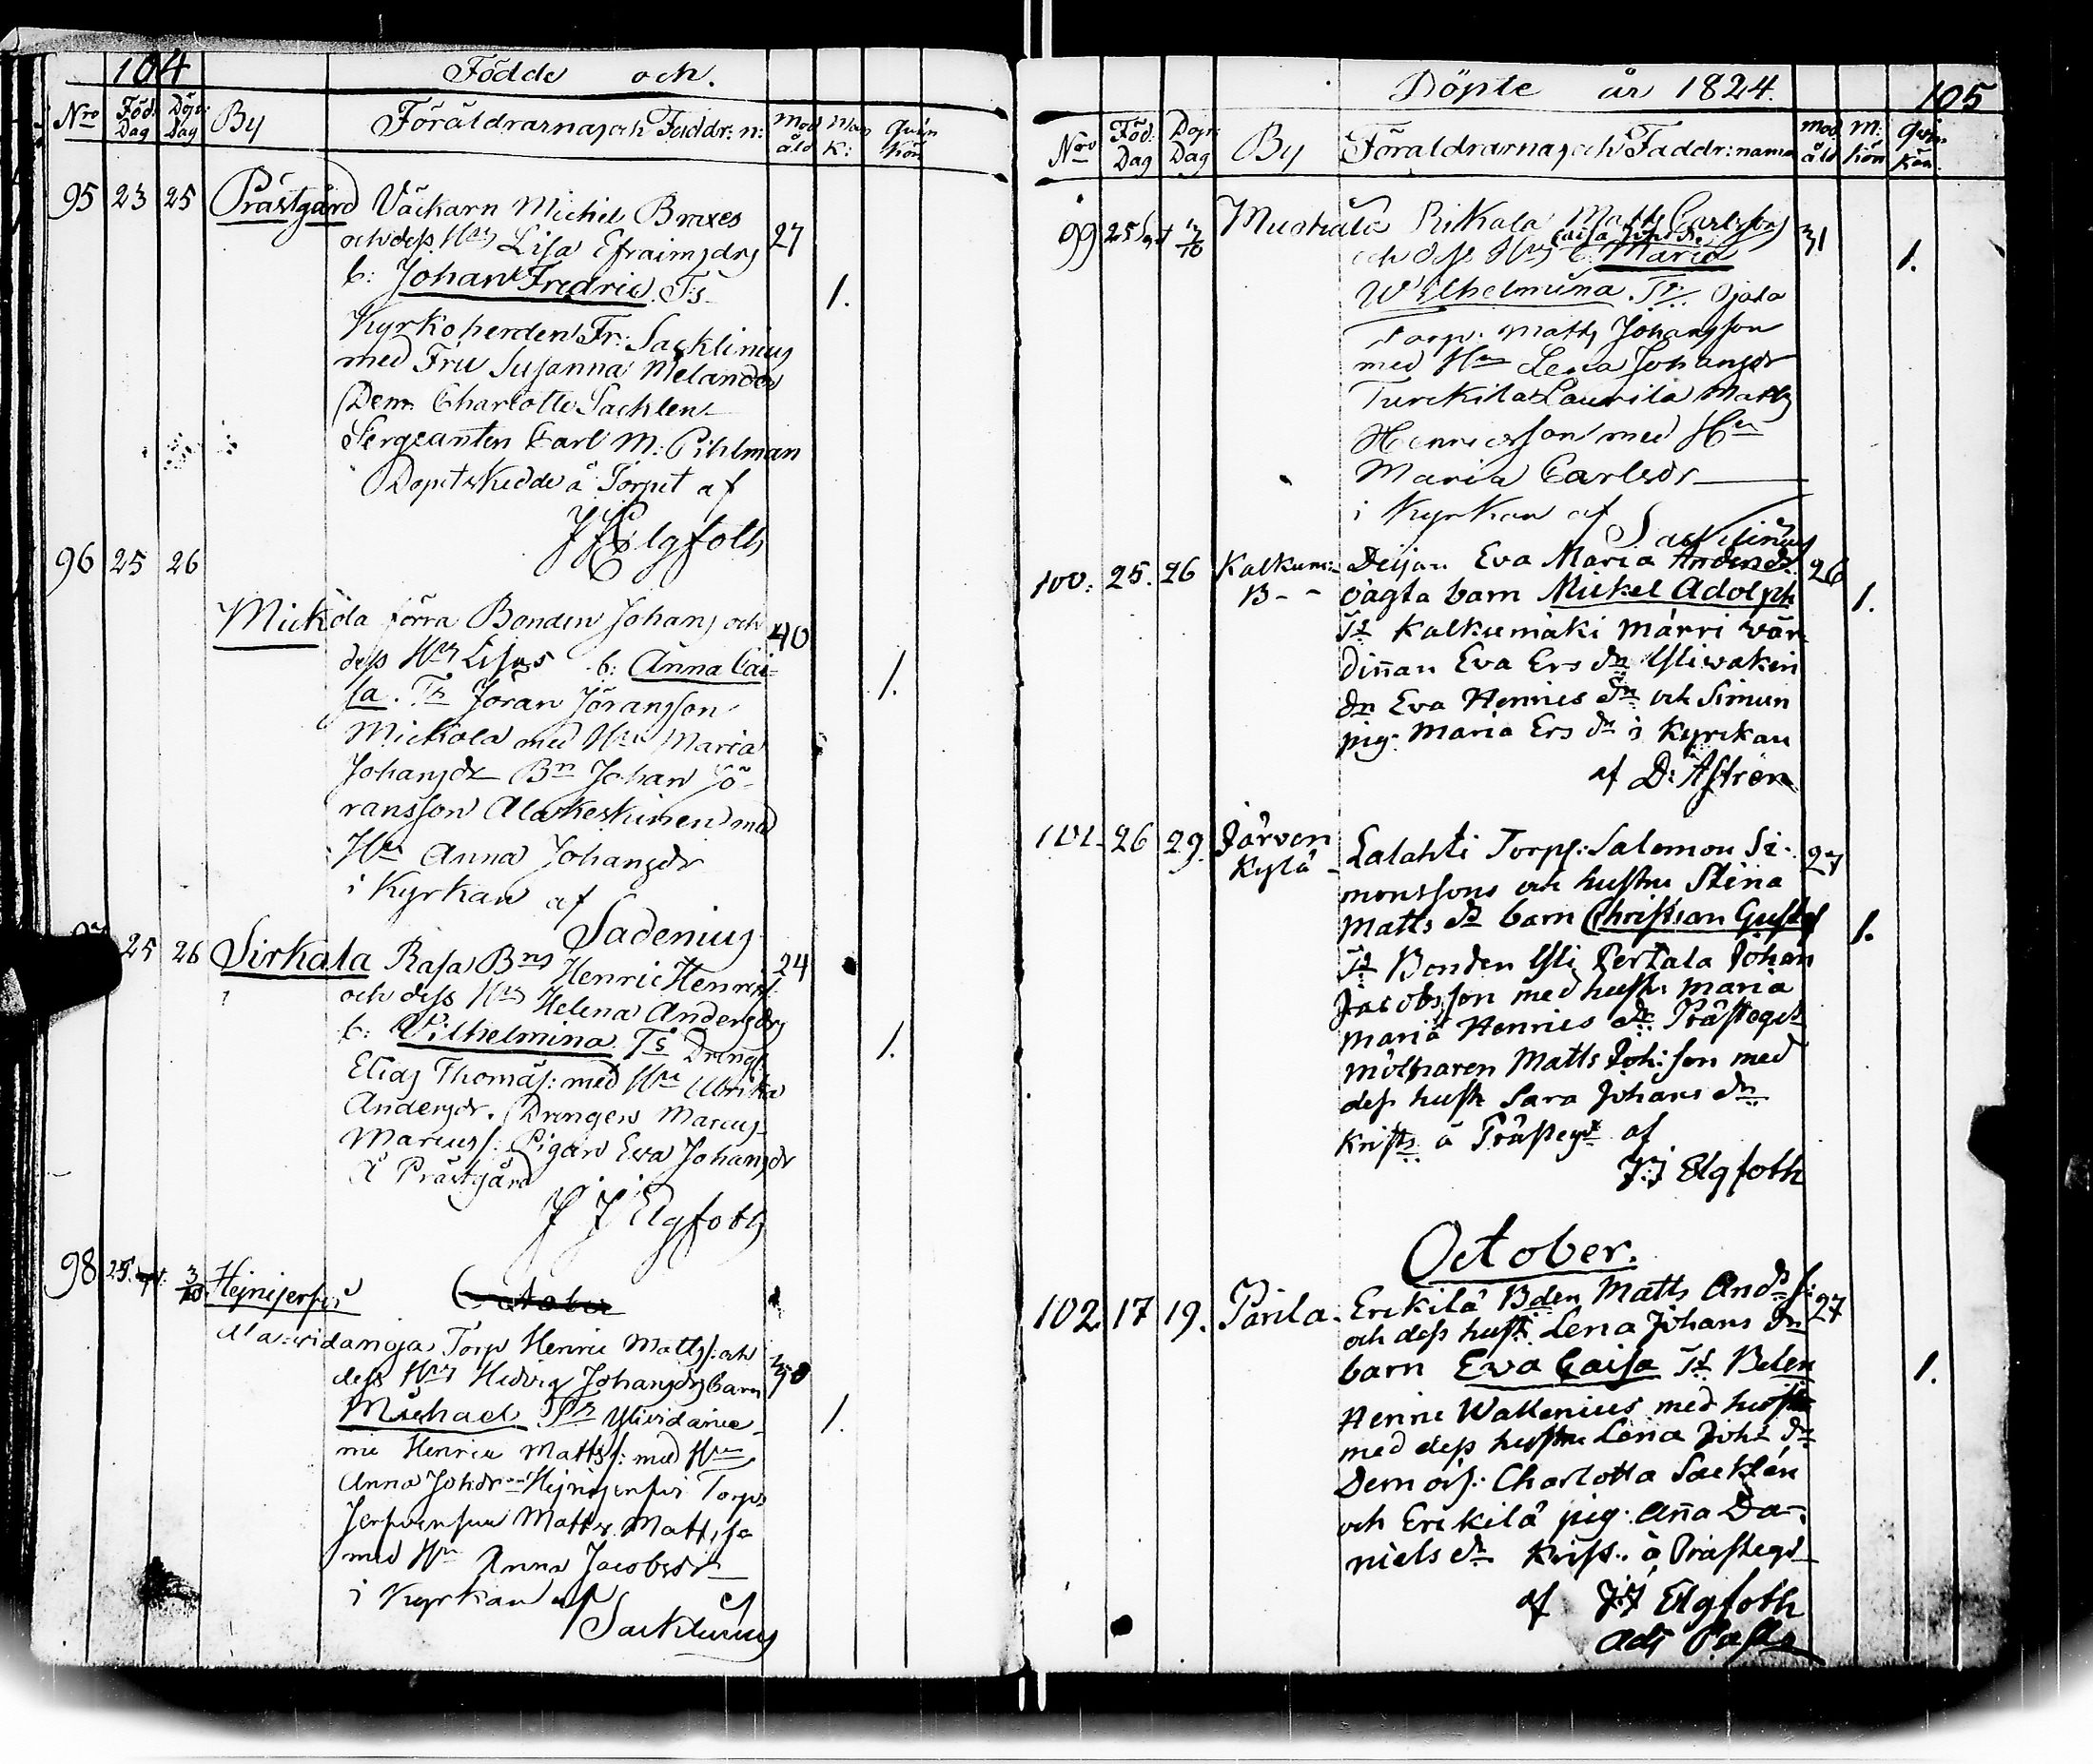 104
Födde och.
Nro Föd: Dag Döp: Dag By Föräldrarnas och Faddr: n: Mod åld Man K: Qvin Kön
95 23 25 Prästgård Väckarn Michel Braxes 27
och dess Hus Lisa Efraimsdrs
b: Johan Fredric. Ts 1.
Kyrkoherden Fr: Sacklinius
med Fru Susanna Melander
Dem. Charlotte Sacklen
Sergeanten Carl M: Pihlman
Dopet skedde å Torpet af
J J Elgfoth
96 25 26
Mickola förra Bonden Johans och 40
dess Hus Lisas b: Anna Cai=
sa. Ts Jöran Jöransson 1.
Mickola med Hu Maria
Johansdr Bn Johan Jö-
ransson Alakeskinen med
Hu Anna Johansdr
i Kyrkan af
Sadenius
25 26 Sirkala Rasa Bns Henric Henrics: 24
och dess Hus Helena Andersdrs
b: Vilhelmina Ts Dreng: 1.
Elias Thomas: med Hu Ulrika
Andersdr. Drengen Marcus
Marcuss: Pigan Eva Johansdr
å Prästgård
J J Elgfoth
98 25 3/10 October
Torp Henric Matts: och 38
dess Hus Hedvig Johansdrs barn
Michael Ts 1.
Henric Mattss: med Hu
Anna Johdr Torp:
Matts Matts
med Hu Anna Jacobsdr
i Kyrkan af
Sacklinius
Döpte år 1824. 105
Nro Föd: Dag Döp: Dag By Föräldrarnas och Faddr: namn Mod: åld M: Kön Qvin: Kön.
99 25 Sept 3/10 Rikala Matts Carlssons 31
Caisa
och dess Hus b. Maria 1.
Wilhelmina. Ts. Ojala
Torp: Matts Johansson
med Hu Lena Johansdr
Laurila Matts
Henricsson med Hu
Maria Carlsdr
i Kyrkan af
Sacklinius
100. 25. 26 Kalkum: Deijan Eva Maria Anders dr 26
B-- oägta barn Mickel Adolph 1.
Ts Kalkumäki Märri vär
dinnan Eva Ers dr
dr Eva Henrics dr och Simun
pig: Maria Ers dr i Kyrckan
af D: Aström
101. 26 29. Järven Lalahti Torps: Salomon Si- 27
Kylä monssons och hustru Stina
Matts dr barn Christian Gustaf 1.
Ts Bonden Yli Pertala Johan
Jacobsson med hust: Maria
Maria Henrics dr Prästegds
mölnaren Matts Joh: son med
dess hust Sara Johans dr
Krists å Prästegd af
J:J Elgfoth
October.
102 17 19. Parila. Erckilä Bden Matts Ands s: 27
och dess hust: Lena Johans dr
barn Eva Caisa Ts Bden 1.
Henric Wallenius med hustru
med dess hustru Lena Johs dr
Demois: Charlotta Sacklén
och Erckilä pig: Anna Da-
niels dr Krist: å Prästegd
af J:J Elgfoth
Adj Past